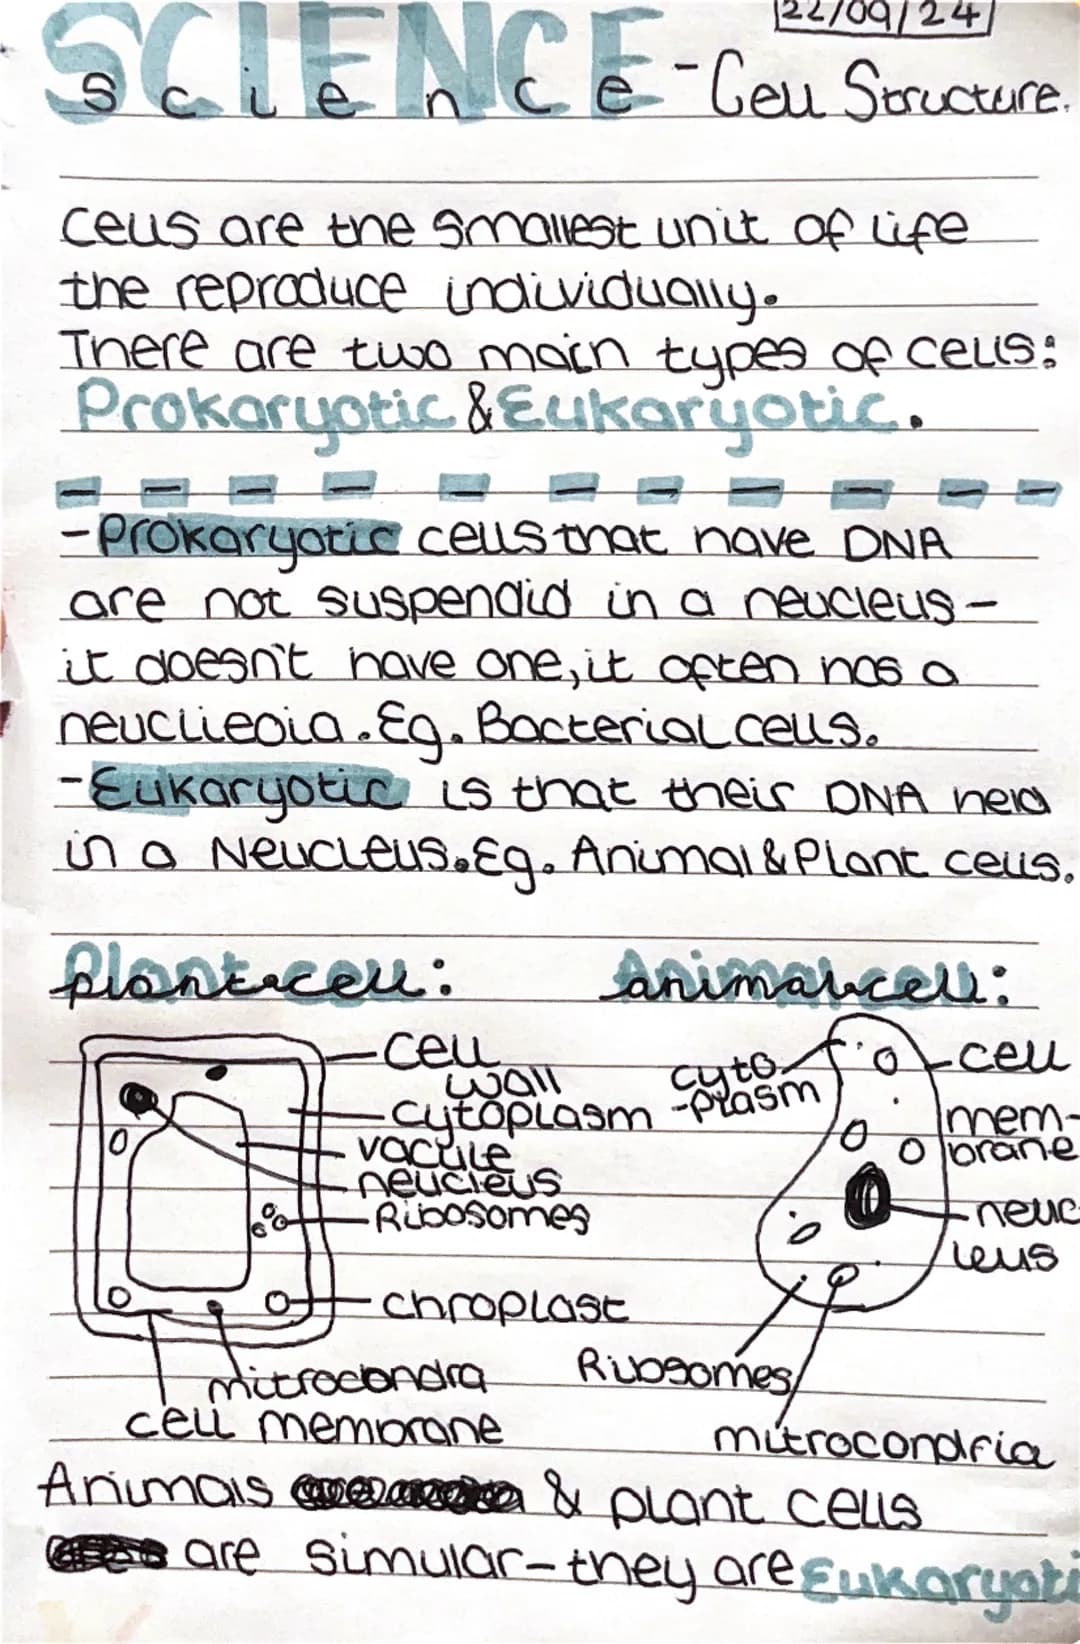 22/09/24
SCIENCE
science - Cell Structure.
Cells are the smallest unit of life
the reproduce individually.
There are two main types of cells:
Prokaryotic & Eukaryotic.
- Prokaryotic cells that have DNA
are not suspendid in a neucleus -
it doesn't have one, it often has a
neuclieoia. Eg. Bacterial cells.
- Eukaryotic is that their DNA held
in a Neucleus. Eg. Animal & Plant cells.
Plant cell:
Animal cell:
cell
wall
cytoplasm
vacuile
neucleus
Ribosomes
chroplast
mitrocondra
cell membrane
cyto
-plasm
cell
mem-
brane
neuc
leus
Ribsomes
mitrocondria
Animals & plant cells
are simular - they are Eukaryoti